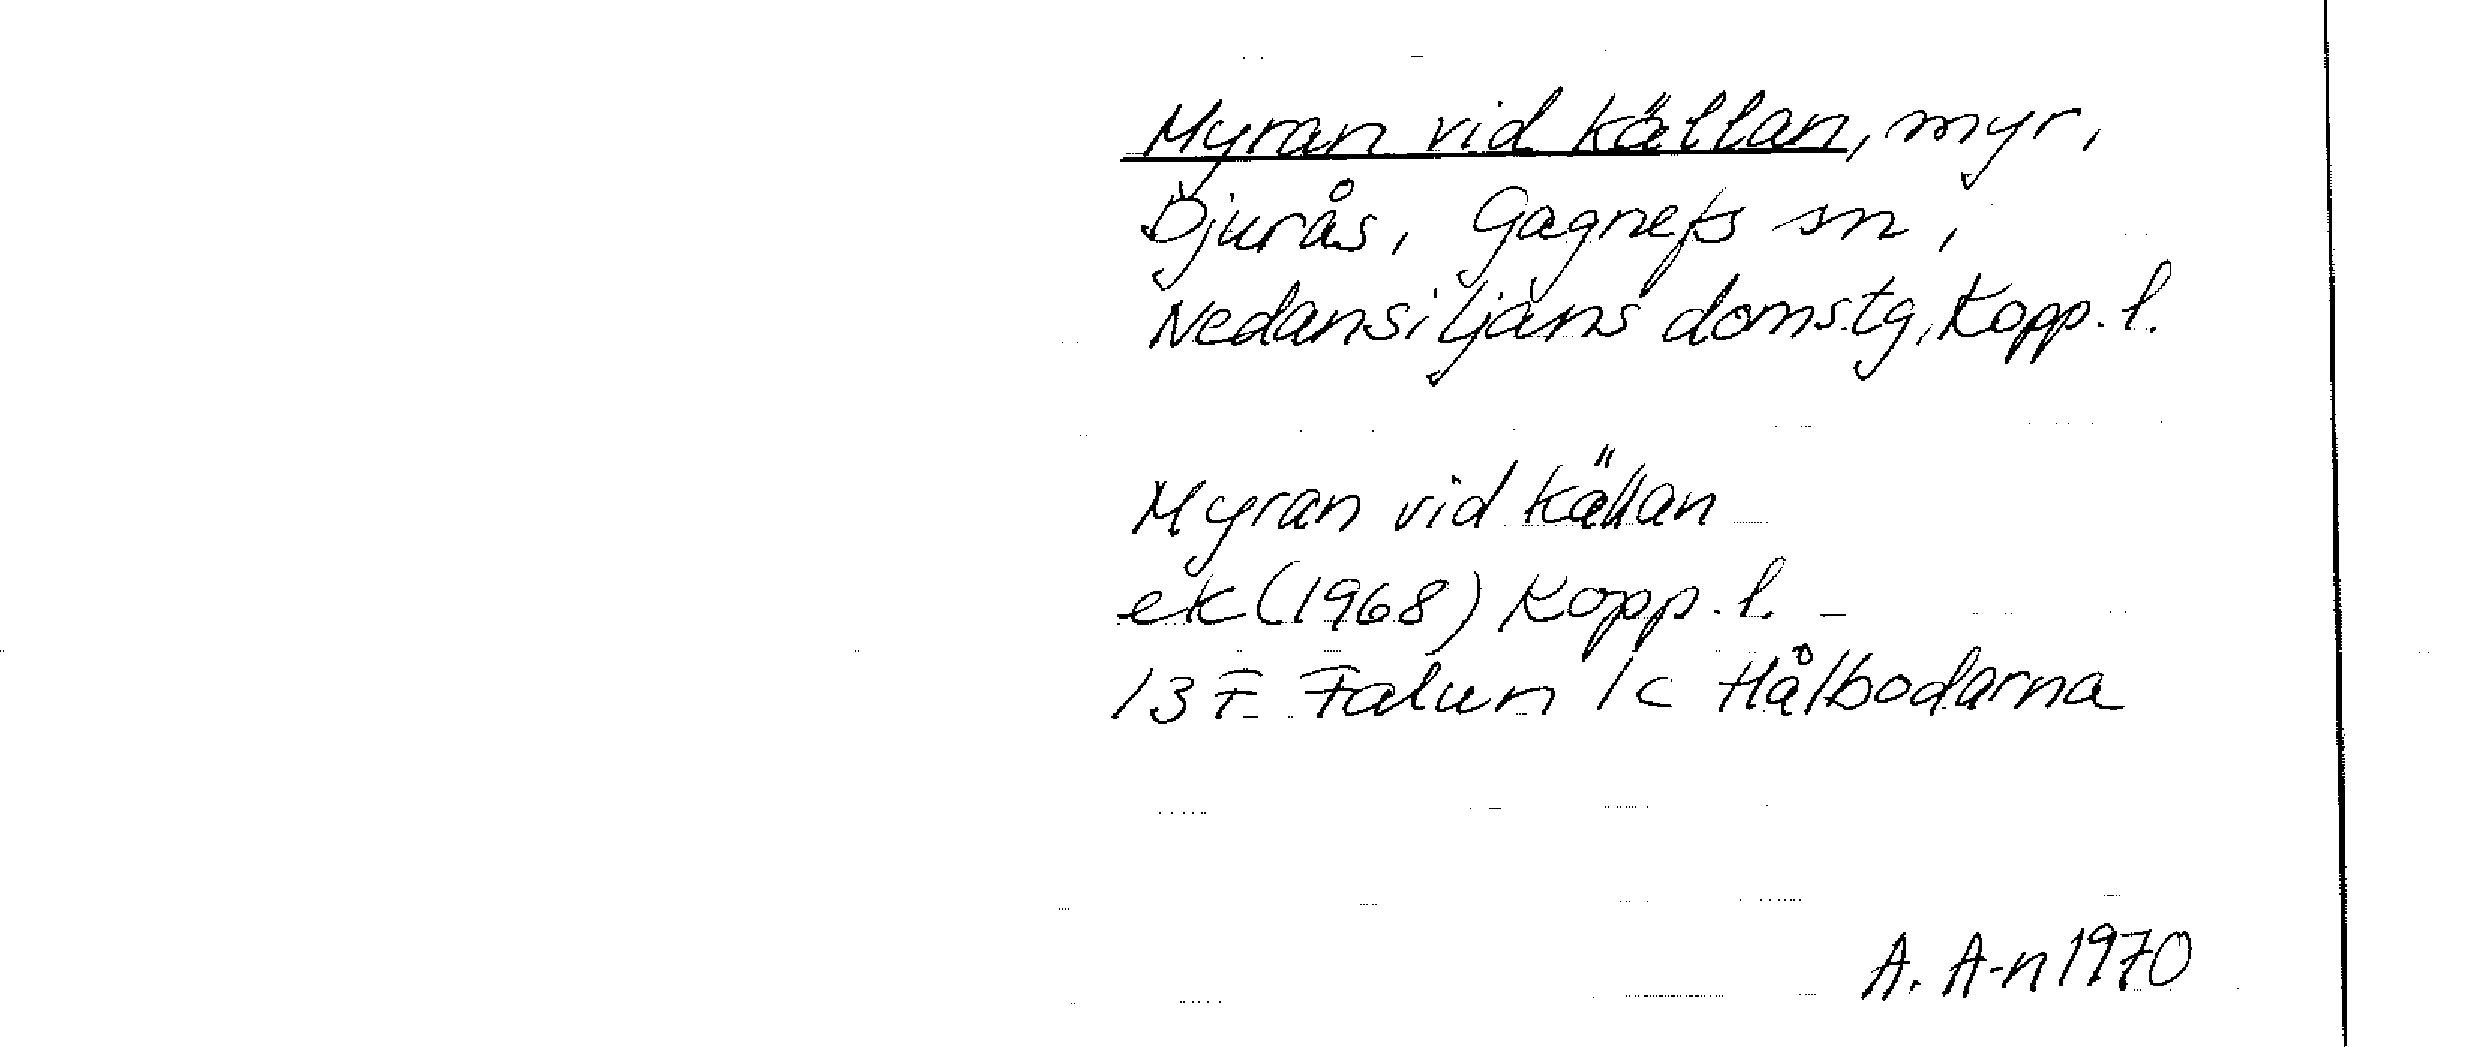 Myran vid Källan, myr,
Djurås, Gagnefs sn,
Nedansiljans domstg, Kopp. l.
Myran vid Källan
ek (1968) Kopp. l.
13 F Falun 1c Hålbodarna
A. A-n 1970